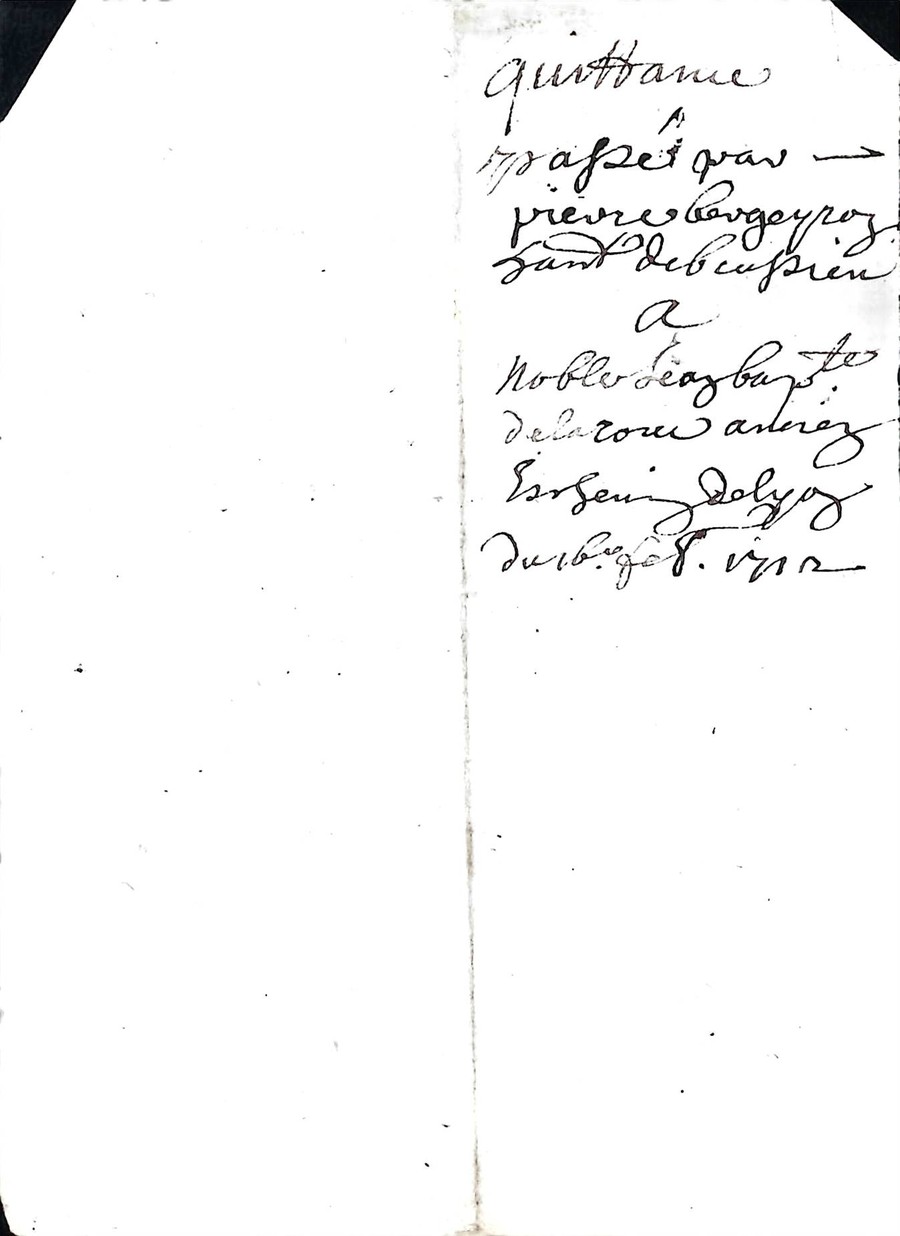 quittance
passée par
pierre bergeyron
hant de beussieu
A
Noble Jean bap.te
delaroue ancien
Eschevin de lyon
du 16.e feb. 1712